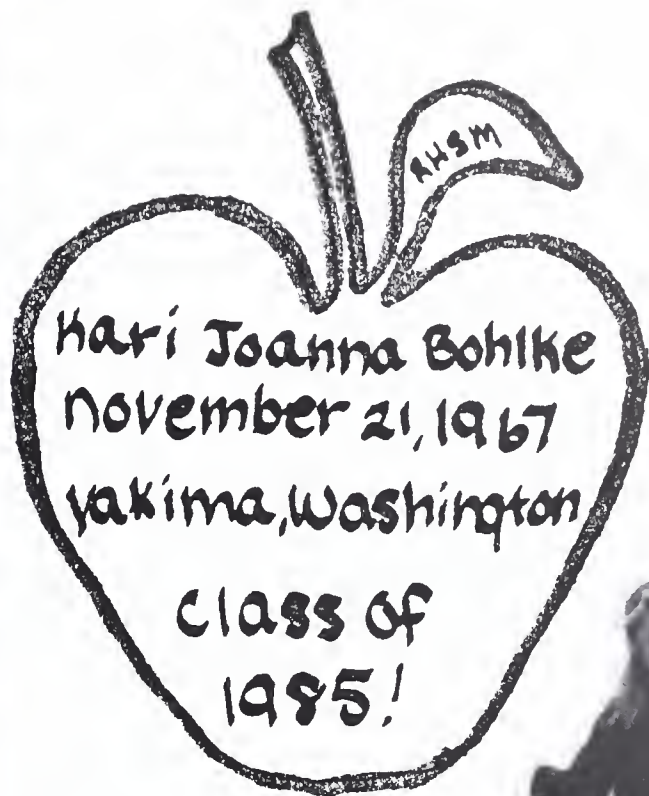 RHSM
Kari Joanna Bohlke
november 21, 1967
yakima, Washington
class of
1985!